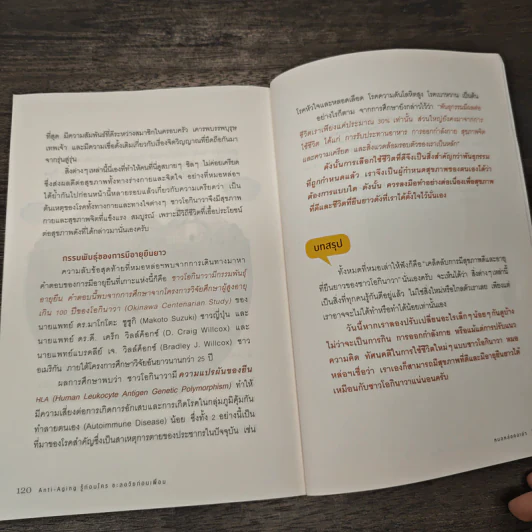 ที่สุด มีความสัมพันธ์ที่ดีระหว่างสมาชิกในครอบครัว เคารพบรรพบุรุษ
เทพเจ้า และมีความเชื่อดั้งเดิมเกี่ยวกับเรื่องจิตวิญญาณที่ยึดถือกันมา
จากรุ่นสู่รุ่น
สิ่งต่างๆเหล่านี้นี่เองที่ทำให้คนที่นี่ดูสบายๆ ชิลๆ ไม่ค่อยเครียด
ซึ่งส่งผลดีต่อสุขภาพทั้งทางร่างกายและจิตใจ อย่างที่หมอหล่อฯ
ได้ย้ำกันไปก่อนหน้านี้หลายรอบแล้วเกี่ยวกับความเครียดว่า เป็น
ต้นเหตุของโรคทั้งทางกายและทางใจต่างๆ ชาวโอกินาวาจึงมีสุขภาพ
กายและสุขภาพจิตที่แข็งแรง สมบูรณ์ เพราะมีวิถีชีวิตที่เอื้อประโยชน์
ต่อสุขภาพดังที่ได้กล่าวมานั่นเองครับ
กรรมพันธุ์ของการมีอายุยืนยาว
ความลับข้อสุดท้ายที่หมอหล่อฯพบจากการเดินทางมาหา
คำตอบของการมีอายุยืนที่เกาะแห่งนี้ก็คือ ชาวโอกินาวามีกรรมพันธุ์
อายุยืน คำตอบนี้พบจากการศึกษาจากโครงการวิจัยศึกษาผู้สูงอายุ
เกิน 100 ปีของโอกินาวา (Okinawa Centenarian Study) ของ
นายแพทย์ ดร.มาโกโตะ ซูซูกิ (Makoto Suzuki) ชาวญี่ปุ่น และ
นายแพทย์ ดร.ดี. เครก วิลล์ค็อกซ์ (D. Craig Willcox) และ
นายแพทย์แบรดลีย์ เจ. วิลล์ค็อกซ์ (Bradley J. Willcox) ชาว
อเมริกัน ภายใต้โครงการศึกษาวิจัยอันยาวนานกว่า 25 ปี
ผลการศึกษาพบว่า ชาวโอกินาวามีความแปรผันของยีน
HLA (Human Leukocyte Antigen Genetic Polymorphism) ทำให้
มีความเสี่ยงต่อการเกิดการอักเสบและการเกิดโรคในกลุ่มภูมิคุ้มกัน
ทำลายตนเอง (Autoimmune Disease) น้อย ซึ่งทั้ง 2 อย่างนี้เป็น
ที่มาของโรคสำคัญซึ่งเป็นสาเหตุการตายของประชากรในปัจจุบัน เช่น
120 Anti-Aging รู้ก่อนใคร ชะลอวัยก่อนเพื่อน
โรคหัวใจและหลอดเลือด โรคความดันโลหิตสูง โรคเบาหวาน เป็นต้น
อย่างไรก็ตาม จากการศึกษายังกล่าวไว้ว่า "พันธุกรรมมีผลต่อ
ชีวิตเราเพียงแค่ประมาณ 30% เท่านั้น ส่วนใหญ่ยังคงมาจากการ
ใช้ชีวิต ได้แก่ การรับประทานอาหาร การออกกำลังกาย สุขภาพจิต
และความเครียด และสิ่งแวดล้อมรอบตัวของเราเป็นหลัก"
ดังนั้นการเลือกใช้ชีวิตที่ดีจึงเป็นสิ่งสำคัญกว่าพันธุกรรม
ที่ถูกกำหนดมาแล้ว เราจึงเป็นผู้กำหนดสุขภาพของตนเองได้ว่า
ต้องการแบบใด ดังนั้น ควรลงมือทำอย่างต่อเนื่องเพื่อสุขภาพ
ที่ดีและชีวิตที่ยืนยาวดังที่เราได้ตั้งใจไว้นั่นเอง
บทสรุป
ทั้งหมดที่หมอเล่าให้ฟังก็คือ "เคล็ดลับการมีสุขภาพดีและอายุ
ที่ยืนยาวของชาวโอกินาวา" นั่นเองครับ จะเห็นได้ว่า สิ่งต่างๆเหล่านี้
เป็นสิ่งที่ทุกคนรู้กันดีอยู่แล้ว ไม่ใช่สิ่งใหม่หรือไกลตัวเราเลย เพียงแต่
เราอาจจะไม่ได้ทำหรือทำได้น้อยเท่านั้นเอง
วันนี้หากเราลองปรับเปลี่ยนอะไรเล็กๆน้อยๆกันดูบ้าง
ไม่ว่าจะเป็นการกิน การออกกำลังกาย หรือแม้แต่การปรับแนว
ความคิด ทัศนคติในการใช้ชีวิตใหม่ๆแบบชาวโอกินาวา หมอ
หล่อฯเชื่อว่า เราเองก็สามารถมีสุขภาพที่ดีและมีอายุยืนยาวได้
เหมือนกับชาวโอกินาวาแน่นอนครับ